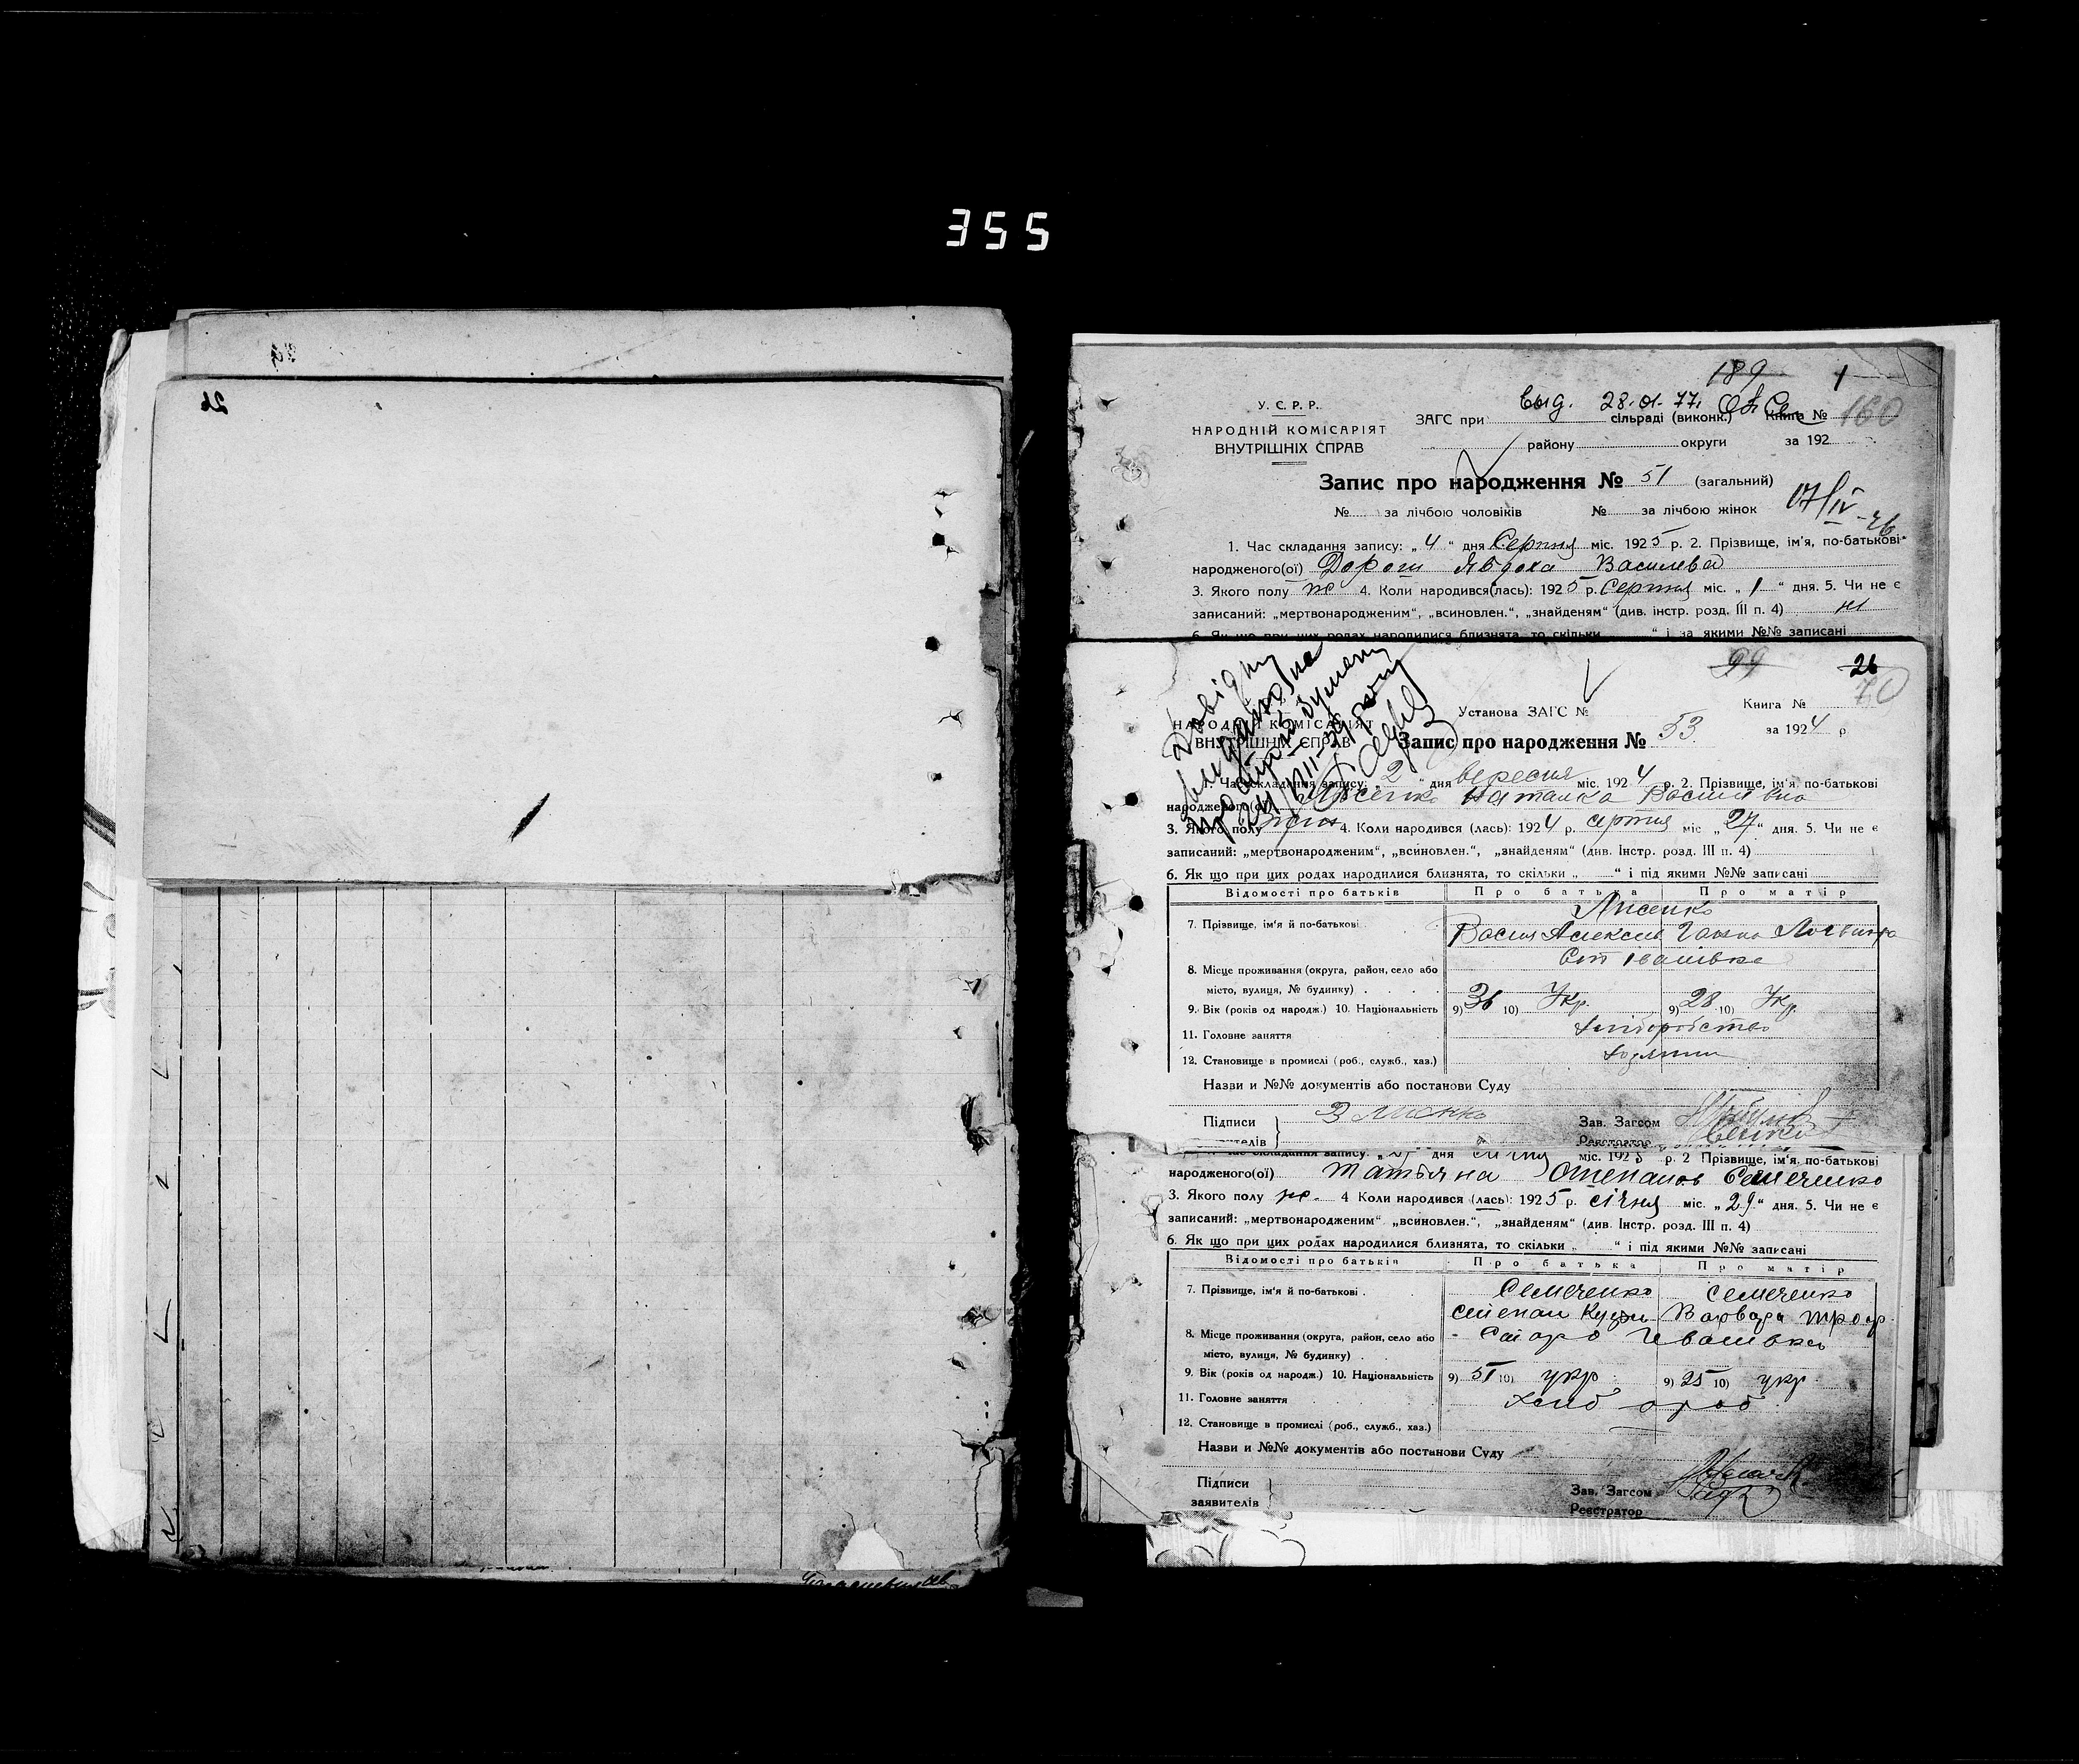 355
26
189 1
У. С. Р. Р.
НАРОДНІЙ КОМІСАРІЯТ
ВНУТРІШНІХ СПРАВ
выд. 28.01.77.
ЗАГС при сільраді (виконк.) Книга № 160
району округи за 192
Запис про народження № 51 (загальний)
№ за лічбою чоловіків № за лічбою жінок
17/IV-46
1. Час складання запису: „4“ дня Серпня міс. 1925 р. 2. Прізвище, ім'я, по-батькові
народженого(ої) Дорош Явдоха Василева
3. Якого полу ж 4. Коли народився(лась): 1925 р. Серпня міс. „1“ дня. 5. Чи не є
записаний: „мертвонародженим“, „всиновлен.“, „знайденям“ (див. інстр. розд. III п. 4) ні
6. Як що при цих родах народилися близнята, то скільки “ і за якими №№ записані
99 26
70
Довідку
видано на
НАРОДНІЙ КОМІСАРІЯТ
ВНУТРІШНІХ СПРАВ
Установа ЗАГС № Книга №
за 1924 р
Запис про народження № 53
1. Час складання запису: 2 “ дня вересня міс. 1924 р. 2. Прізвище, ім'я, по-батькові
народженого(ої) Лисенко Наталка Василівна
3. Якого полу жін 4. Коли народився (лась): 1924 р. серпня міс „27“ дня. 5. Чи не є
записаний: „мертвонародженим“, „всиновлен.“, „знайденям“ (див. Інстр. розд. III п. 4)
6. Як що при цих родах народилися близнята, то скільки „ “ і під якими №№ записані
Відомості про батьків Про батька Про матір
Лисенко
7. Прізвище, ім'я й по-батькові Василь Алексеев Ганна Логвинова
8. Місце проживання (округа, район, село або Ст Івашівка
місто, вулиця, № будинку)
9. Вік (років од народж.) 10. Національність 9) 36 10) Укр. 9) 28 10) Укр.
11. Головне заняття хліборобство
12. Становище в промислі (роб., служб., хаз.)
Назви и №№ документів або постанови Суду
Підписи В Лисенко Зав. Загсом
Реєстратор
1. Час складання запису: „ “ дня січня міс. 1925 р. 2 Прізвище, ім'я, по-батькові
народженого(ої) Татьяна Степанов Семеченко
3. Якого полу ж. 4 Коли народився (лась): 1925 р. січня міс. „29“ дня. 5. Чи не є
записаний: „мертвонародженим“ „всиновлен.“, „знайденям“ (див. Інстр. розд. III п. 4)
6. Як що при цих родах народилися близнята, то скільки „ “ і під якими №№ записані
Відомості про батьків Про батька Про матір
7. Прізвище, ім'я й по-батькові Семеченко Семеченко
Степан Кузьм Варвара Троф
8. Місце проживання (округа, район, село або Старо Ивашівка
місто, вулиця, № будинку)
9. Вік (років од народж.) 10. Національність 9) 51 10) укр 9) 25 10) укр
11. Головне заняття хліб ороб
12. Становище в промислі (роб., служб., хаз.)
Назви и №№ документів або постанови Суду
Підписи
заявителів
Зав. Загсом
Реєстратор